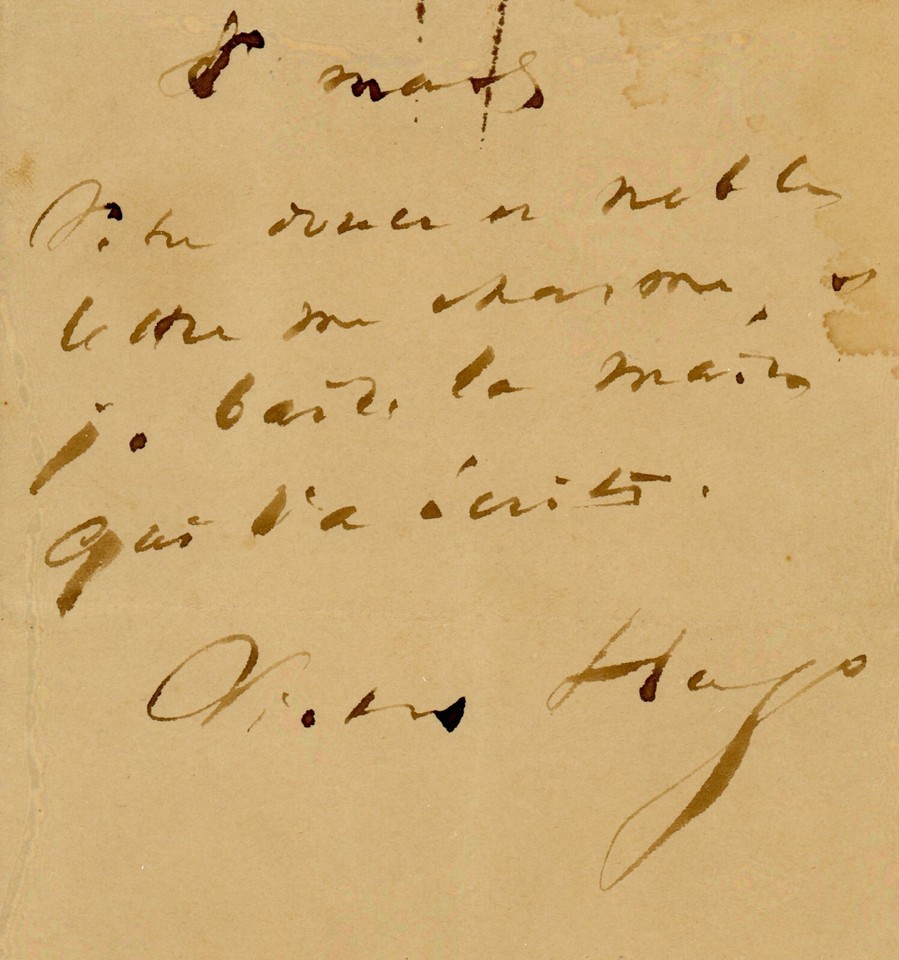 8 mars
Votre douce et noble
lettre me charme, et
je baise la main
qui l'a écrite.
Victor Hugo